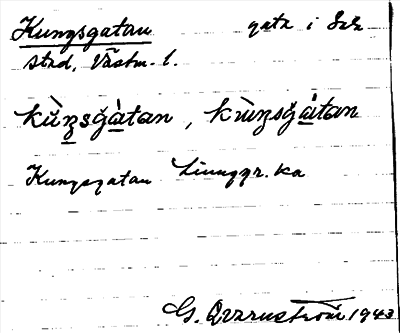 Kungsgatan gata i Sala
stad, Västm. l.
kùŋsgàtan, kùŋsgàtan
Kungsgatan Ljunggr. ka
G. Qvarnström 1943